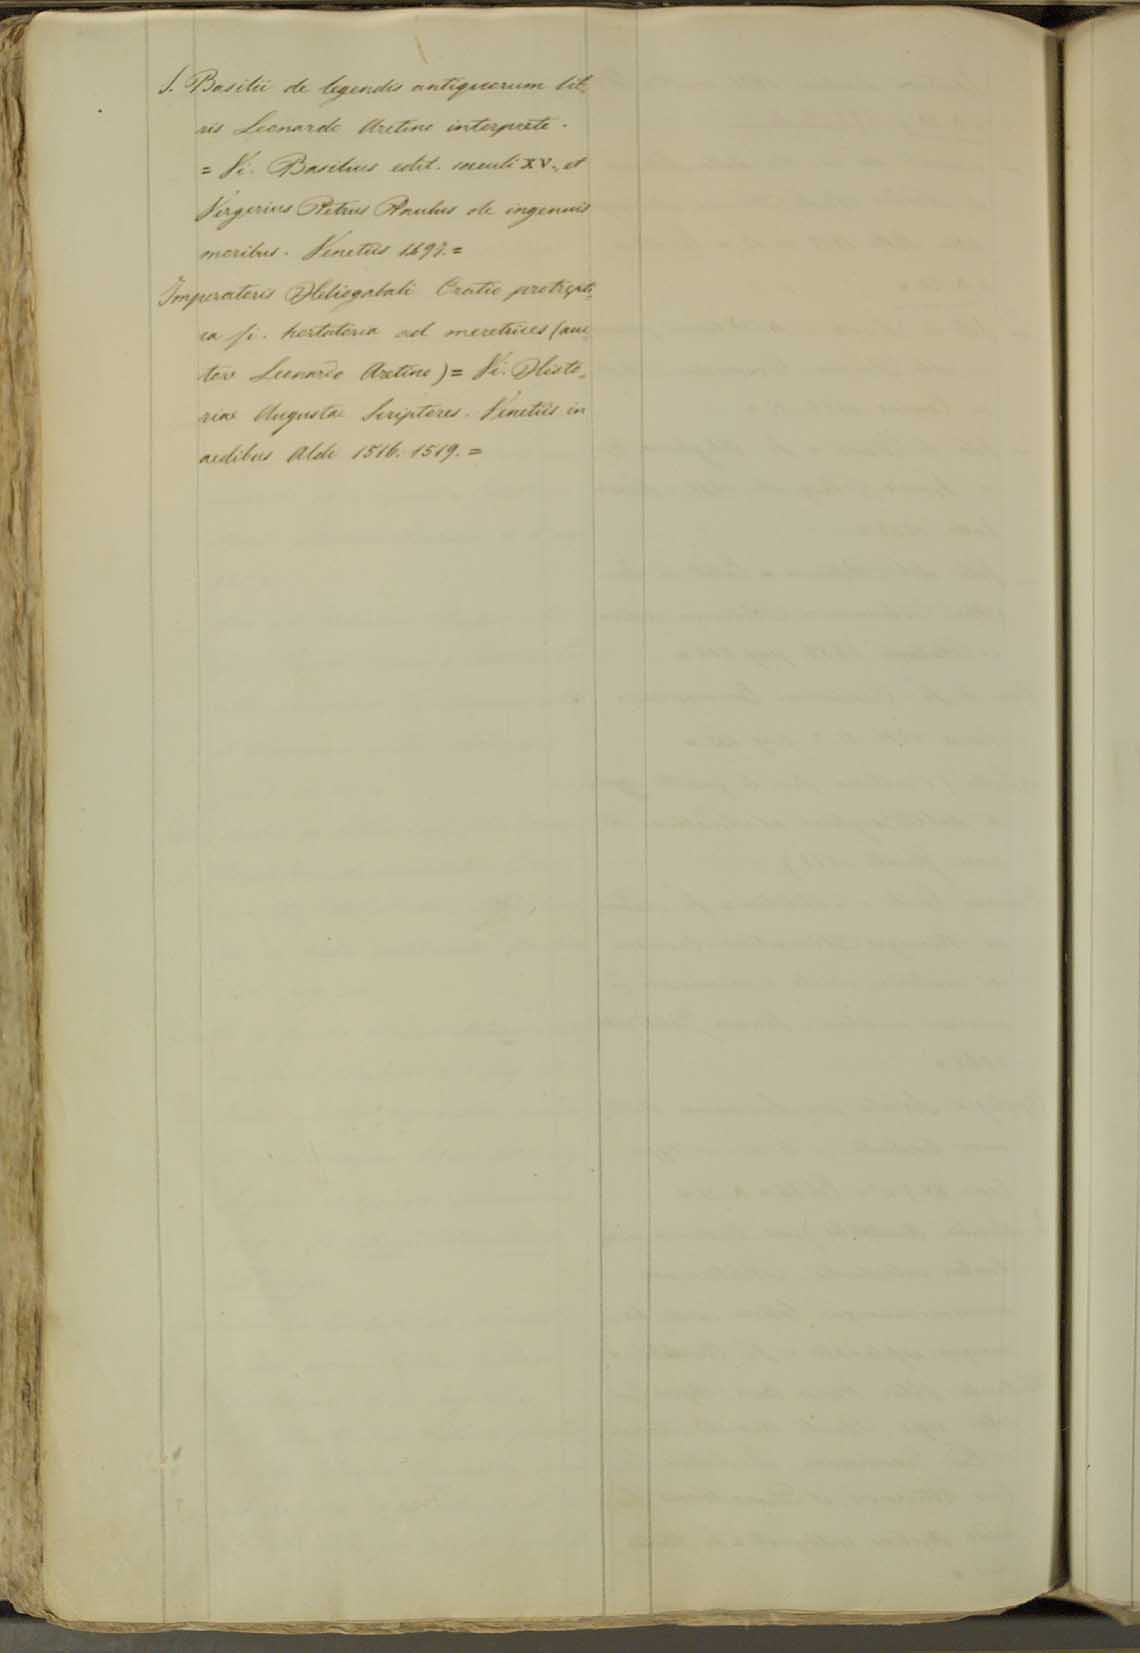 S. Basilii de legendis antiquorum lib,
ris Leonardo Aretino interprete.
= Vi. Basilius edit. saeculi XV., et
Vergerius Petrus Paulus de ingenuis
moribus. Venetiis 1497. =
Imperatoris Heliogabali Oratio protrepti,
ca si. hortatoria ad meretrices (auc,
tore Leonardo Aretino) = Vi. Histo,
riae Augustae Scriptores. Venetiis in
aedibus Aldi 1516. 1519. =